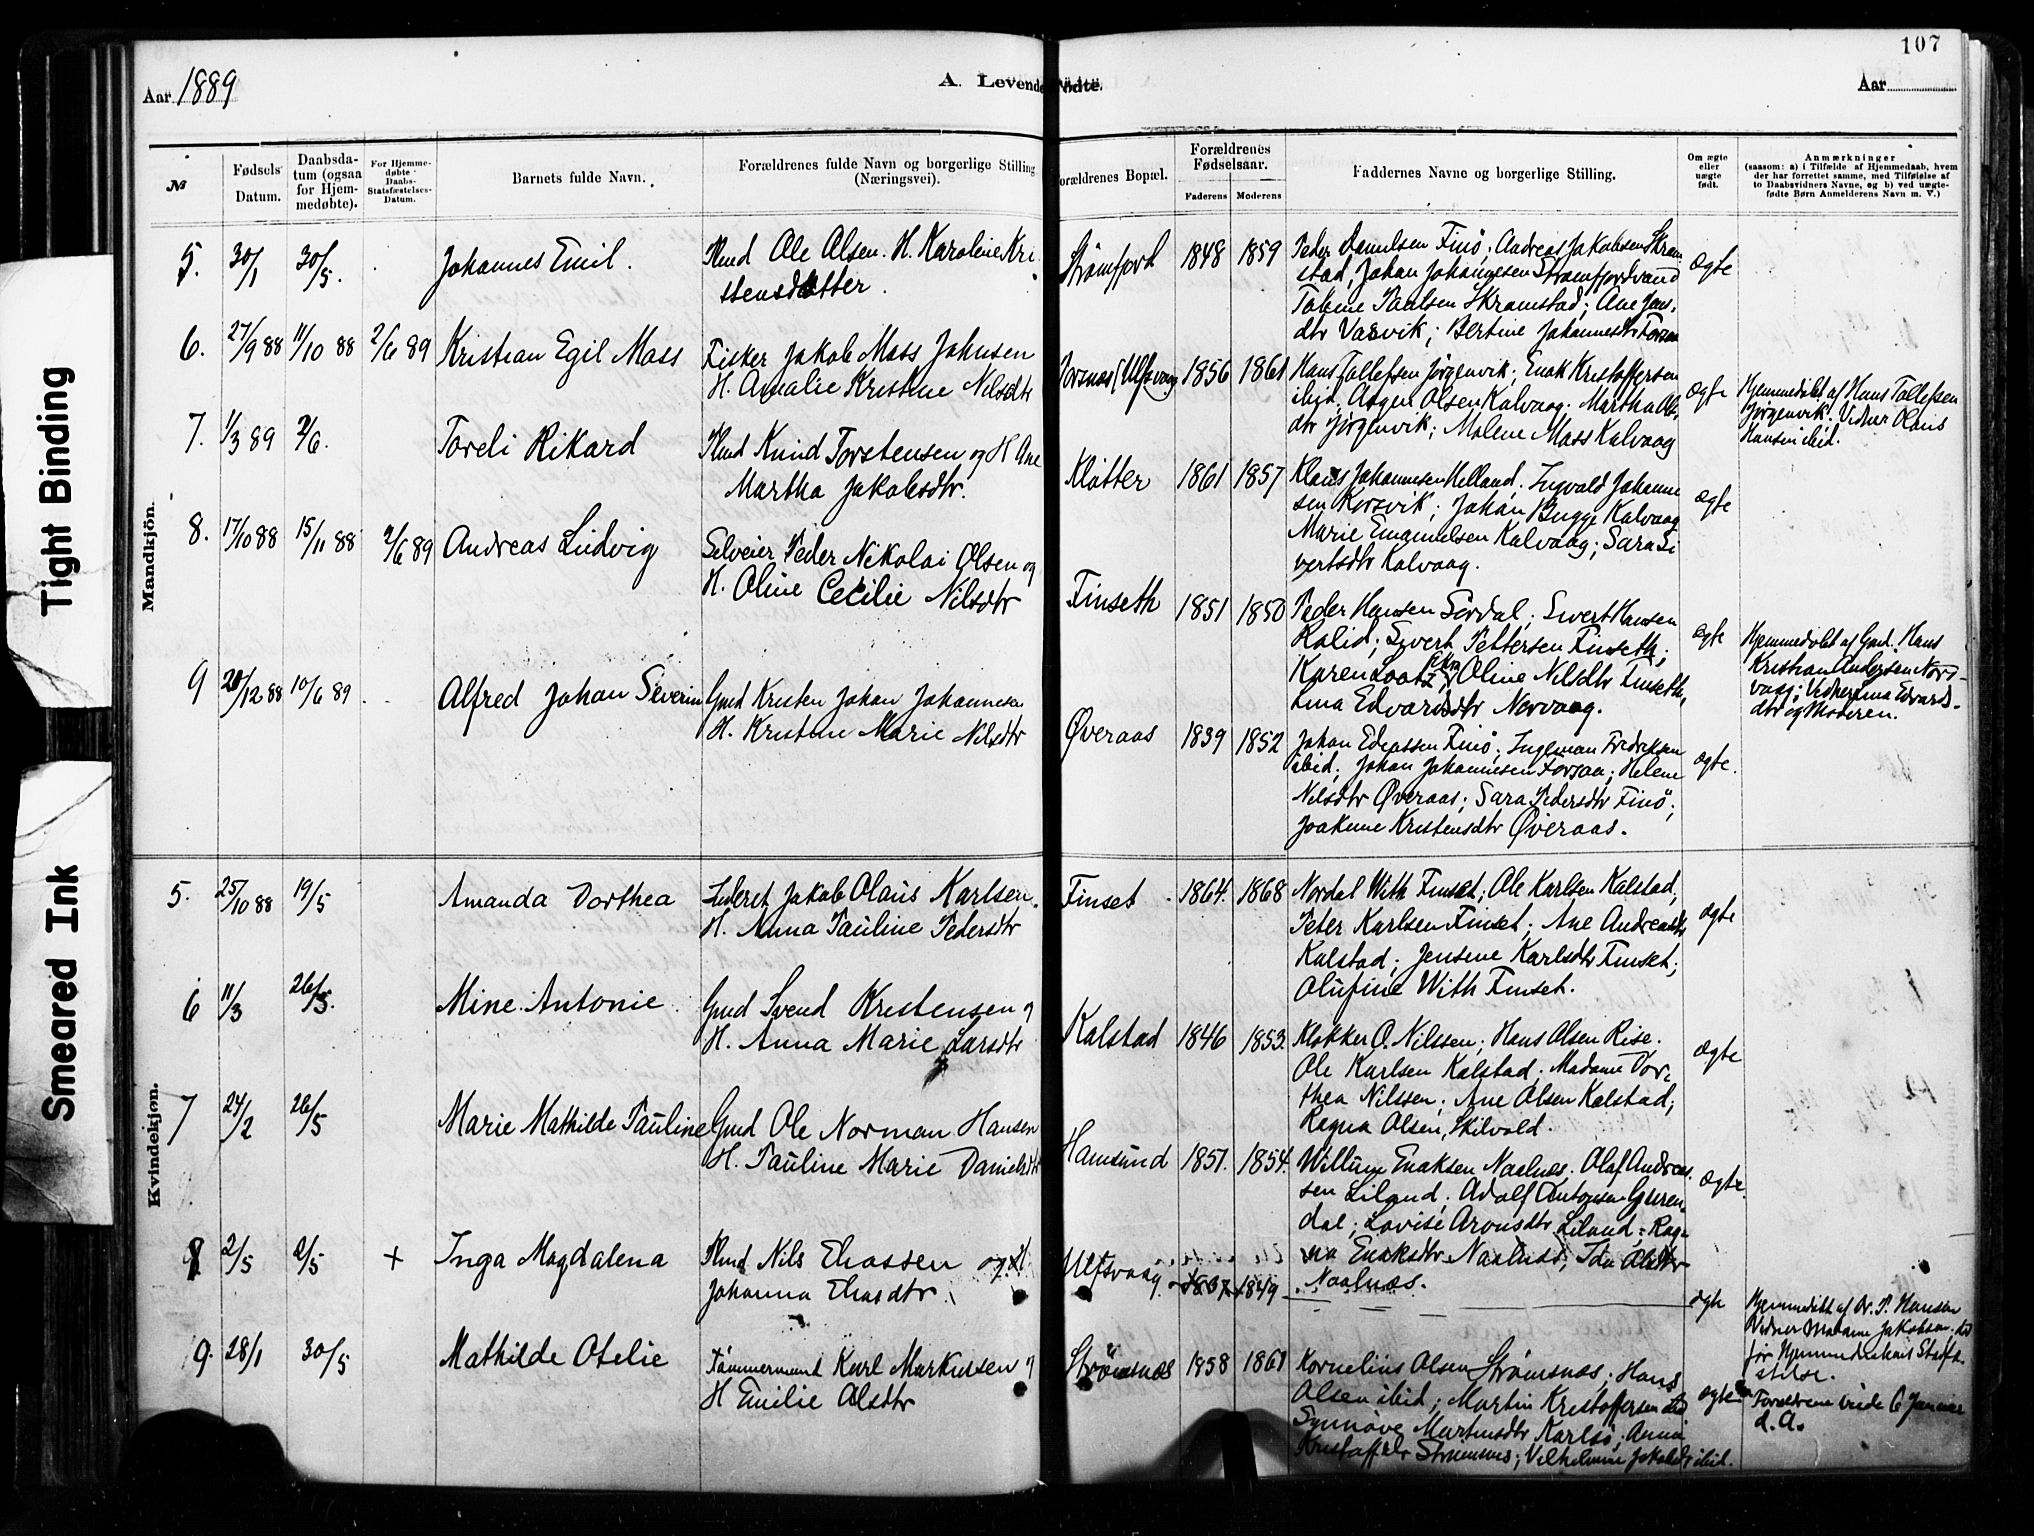 107
Aar 1889
A. Levende Fødte.
Aar
№
Fødsels Datum.
Daabsdatum (ogsaa for Hjemmedøbte).
For Hjemmedøbte Daabs-Stadfæstelses-Datum.
Barnets fulde Navn.
Forældrenes fulde Navn og borgerlige Stilling (Næringsvei).
Forældrenes Bopæl.
Forældrenes Fødselsaar.
Faderens
Moderens
Faddernes Navne og borgerlige Stilling.
Om ægte eller uægte født.
Anmærkninger
(saasom: a) i Tilfælde af Hjemmedaab, hvem der har forrettet samme, med Tilføielse af to Daabsvidners Navne, og b) ved uægtefødte Børn Anmelderens Navn m. V.)
Tight Binding
Smeared Ink
Mandkjön.
5. 30/1 30/5. Johannes Emil. Ole Olsen. H. Karoline Kri
stensdatter.
Strömfjord 1848 1859 Peder Danielsen Finö; Andreas Jakobsen Skram
stad, Johan Johannesen Strømfjordvand
Paulsen Skramstad; Ane Jens
dtr Vasvik; Bertine Johannesdtr
ægte
6. 27/9 88 11/10 88 2/6 89 Kristian Egil Mass Fisker Jakob Mass Johnsen
H. Amalie Kristine Nilsdtr
1856 1861 Hans Tollefsen Jørgenvik; Enok Kristoffersen
ibid, Olsen Kalvaag. Martha Ols
dtr Jørgenvik; Malene Mass Kalvaag
ægte Hjemmedøbt af Hans Tollefsen
Jørgenvik. Vidner Olaus
Hansen ibid.
7. 1/3 89 2/6. Toreli Rikard Knud Torstensen og H Ane
Martha Jakobsdtr.
Klötter 1861 1857 Klaus Johannesen Helland, Ingvald Johanne
sen Korsvik; Johan Bugge Kalvaag
Marie Emanuelsen Kalvaag; Sara Si
vertsdtr Kalvaag.
ægte
8. 17/10 88 15/11 88 2/6 89 Andreas Ludvig Selveier Peder Nikolai Olsen og
H. Oline Cecilie Nilsdtr
Finseth 1851 1850 Peder Hansen Sördal; Sivert Hansen
Sivert Pettersen Finseth;
Karen Oline Nilsdtr Finseth,
Lina Edvardsdtr Norvaag.
ægte Hjemmedøbt af Gmd. Hans
Kristian Andersen Nord-
vaag; Vidner Lina Edvards-
dtr og Moderen.
9 20/12 88 10/6 89 Alfred Johan Severin Gmd Kristen Johan Johannesen
H. Kristine Marie Nilsdtr
Øveraas 1839 1852 Johan Finö, Ingeman Fredriksen
ibid; Johan Johannesen Forsaa; Helene
Nilsdtr Øveraas; Sara Pedersdtr Finö;
Joakime Kristensdtr Øveraas.
ægte.
Kvindekjön.
5. 25/10 88 19/5 Amanda Dorthea Jakob Olaus Karlsen.
H. Anna Pauline Pedersdtr
Finset 1864. 1868 Nordal With Finset; Ole Karlsen Kalstad,
Peter Karlsen Finset; Ane Andreasdtr
Kalstad; Jensine Karlsdtr Finset;
Olufine With Finset.
ægte
6 11/3 26/5. Mine Antonie Gmd Svend Kristensen og
H. Anna Marie Larsdtr
Kalstad 1846 1853. Klokker O. Nilssen; Hans Olsen Rise.
Ole Karlsen Kalstad. Madame Dor-
thea Nilssen; Ane Olsen Kalstad;
Ragna Olsen, Skilvold.
ægte
7 24/2 26/5 Marie Mathilde Pauline Gmd Ole Norman Hansen
H. Pauline Marie Danielsdtr
Hamsund 1851. 1854. Willum Enoksen Naalnæs. Olaf Andreas
sen Liland; Adolf Antonsen
dal; Lovise Aronsdtr Liland; Rag-
na Enoksdtr Naalnæs; Ida Olsdtr
Naalnæs.
ægte.
8 2/5 2/5 + Inga Magdalena Nils Eliassen og H.
Johanna Eliasdtr.
Ulfsvaag. 1837 1849
ægte Hjemmedöbt af Or. P. Hansen
Vidner Madame Jakobsen.
før Hjemmedaabens Stadfæ-
stelse.
9. 28/1 30/5 Mathilde Otelie Tömmermand Karl Markussen og
H Emilie Olsdtr
Strömsnæs 1858 1861 Kornelius Olsen Strömsnæs; Hans
Olsen ibid; Martin Kristoffersen ibid
Synnöve Martinsdtr Karlsö; Anna
Kristoffdtr Strömsnæs; Vilhelmine Jakobsd ibid.
ægte Forældrene viede 6 Januar
d. A.